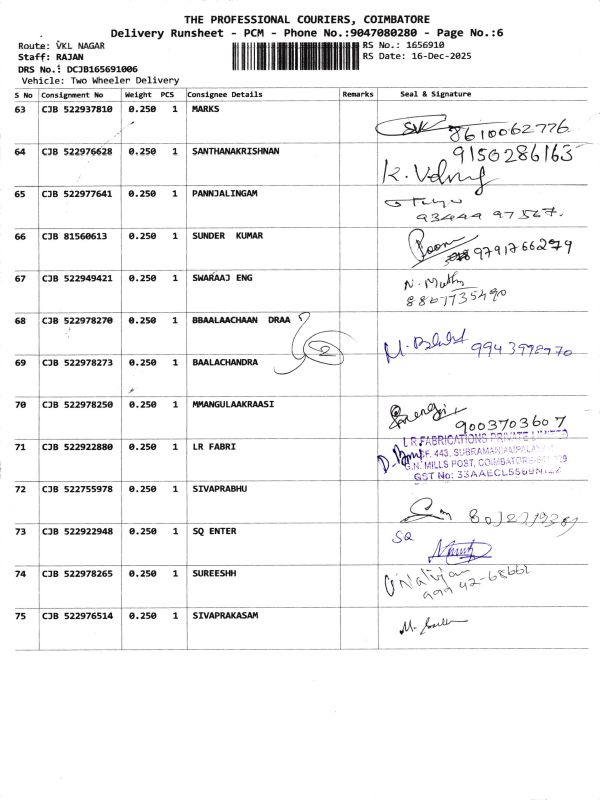 THE PROFESSIONAL COURIERS, COIMBATORE
Delivery Runsheet - PCM - Phone No.:9047080280 - Page No.:6
Route: VKL NAGAR RS No.: 1656910
Staff: RAJAN RS Date: 16-Dec-2025
DRS No.: DCJB165691006
Vehicle: Two Wheeler Delivery
S No Consignment No Weight PCS Consignee Details Remarks Seal & Signature
63 CJB 522937810 0.250 1 MARKS
SVK 8610062776
64 CJB 522976628 0.250 1 SANTHANAKRISHNAN 9150286163
K.
65 CJB 522977641 0.250 1 PANNJALINGAM
93444 97567.
66 CJB 81560613 0.250 1 SUNDER KUMAR
9791766279
67 CJB 522949421 0.250 1 SWARAAJ ENG
N.
8807735490
68 CJB 522978270 0.250 1 BBAALAACHAAN DRAA
2
M.
69 CJB 522978273 0.250 1 BAALACHANDRA
70 CJB 522978250 0.250 1 MMANGULAAKRAASI
9003703607
L R FABRICATIONS PRIVATE LIMITED
71 CJB 522922880 0.250 1 LR FABRI
S.F. 443, SUBRAMANIAMPALAYAM
G.N. MILLS POST, COIMBATORE
GST No: 
72 CJB 522755978 0.250 1 SIVAPRABHU
73 CJB 522922948 0.250 1 SQ ENTER SQ
74 CJB 522978265 0.250 1 SUREESHH
99942-68662
75 CJB 522976514 0.250 1 SIVAPRAKASAM
M.